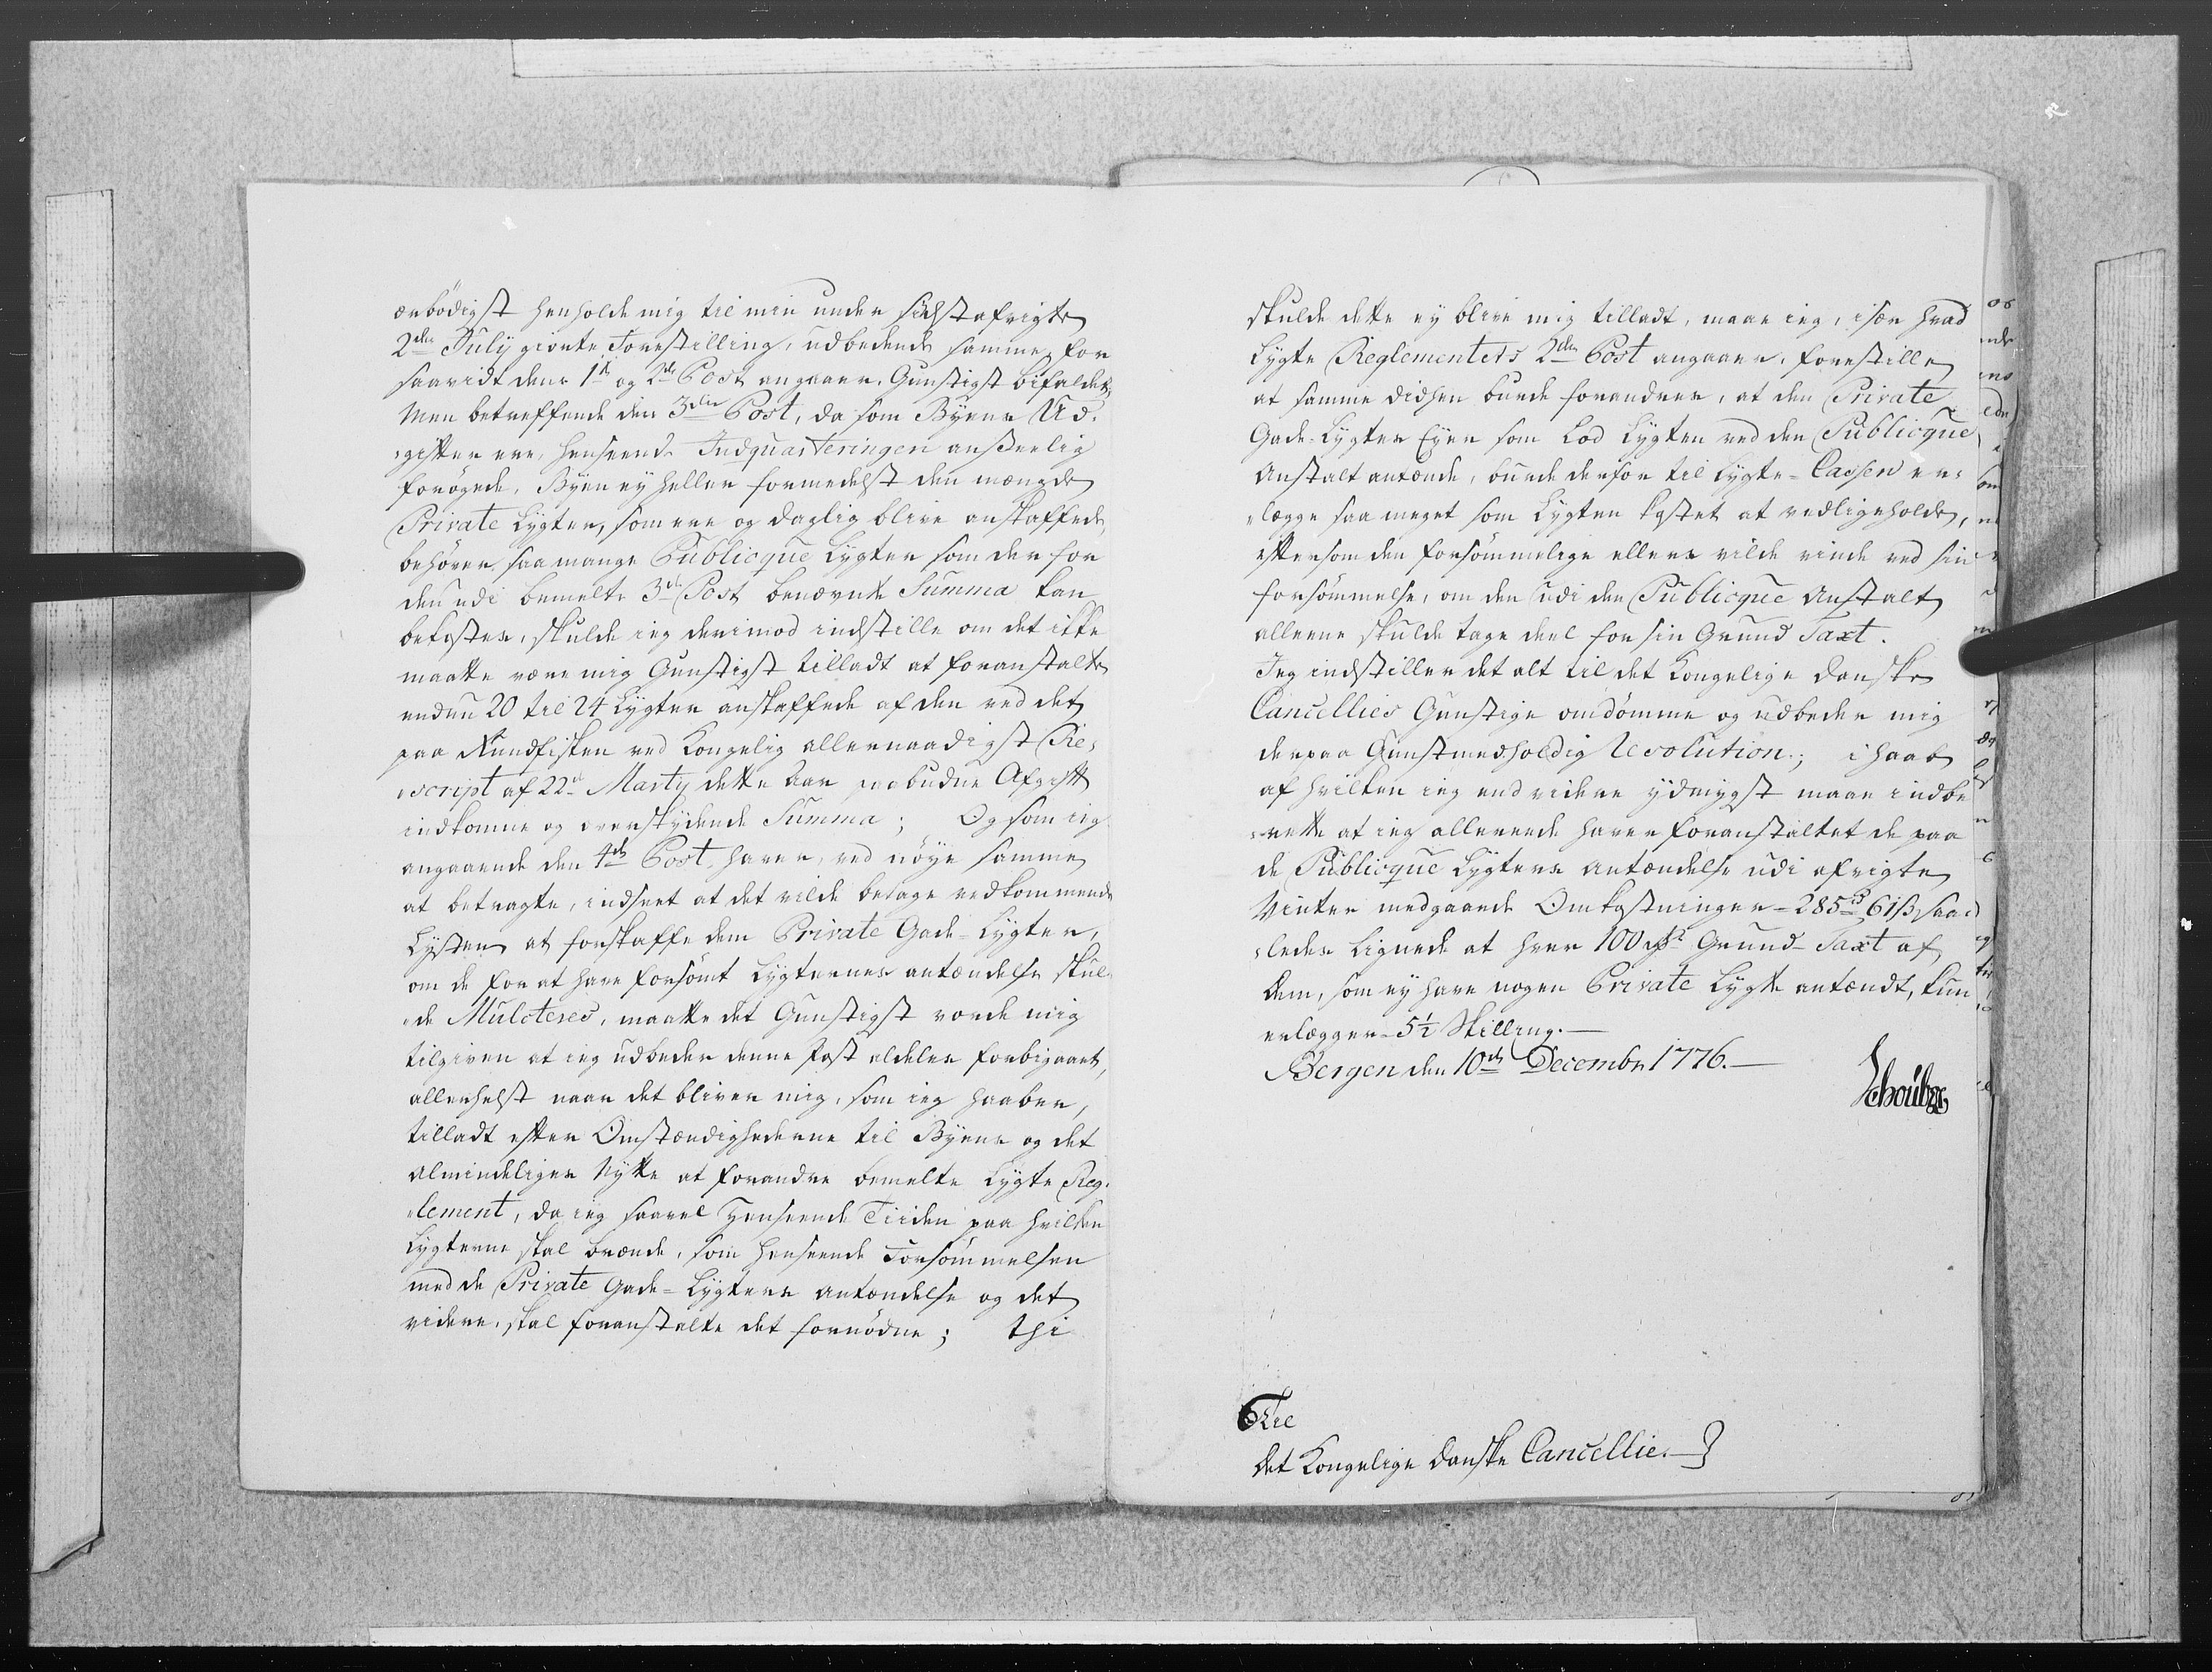 ærbødigst henholde mig til min under sidst afvigte
2den July giorte Forestilling, udbedende samme, for
saavidt dens 1te og 2de Post angaaer, Gunstigst bifaldet,
Men betreffende den 3die Post, da som Byens Ud-
gifter ere, henseende Indquarteringen anseelig
forøgede, Byen ey heller formedelst den mængde
Private Lygter, som ere og daglig blive anskaffede,
behøver saa mange Publicque Lygter som der for
den udi bemelte 3die Post benævnte Summa kan
bekostes, skulde ieg derimod indstille om det ikke
maatte være mig Gunstigst tilladt at foranstalte
endnu 20 til 24 Lygter anskaffede af den ved det
paa Rundfisken ved Kongelig allernaadigst Re-
script af 22de Marty dette Aar paabudne Afgift
indkomne og overskydende Summa; Og som ieg
angaaende den 4de Post haver, ved nøye samme
at betragte, indseet at det vilde betage vedkommende
Lysten at forskaffe dem Private Gade-Lygter,
om de for at have forsømt Lygternes antændelse skul-
de Mulcteres, maatte det Gunstigst vorde mig
tilgiven at ieg udbeder denne Post aldeles forbigaaet,
allerhelst naar det bliver mig, som ieg haaber,
tilladt efter Omstændighederne til Byens og det
Almindeliges Nytte at forandre bemelte Lygte Reg-
lement, da ieg saavel henseende Tiiden paa hvilken
Lygterne skal brænde, som henseende Forsømmelsen
med de Private Gade-Lygters antændelse og det
videre, skal foranstalte det fornødne; thi
skulde dette ey blive mig tilladt, maae ieg, især hvad
Lygte Reglementets 2den Post angaaer, forestille
at samme didhen burde forandres, at den Private
Gade-Lygtes Eyer som lod Lygten ved den Publicque
Anstalt antænde, burde derfor til Lygte-Cassen er-
lægge saa meget som Lygten kostet at vedligeholde,
eftersom den forsømmelige ellers vilde vinde ved sin
forsømmelse, om den udi den Publicque Anstalt
alleene skulde tage deel for sin Grund Taxt.
Jeg indstiller det alt til det Kongelige danske
Cancellies Gunstige omdømme og udbeder mig
derpaa Gunstmedholdig Resolution; i haab
af hvilken ieg end videre ydmygst maae indbe-
rette at ieg allereede haver foranstaltet de paa
de Publicque Lygters antændelse udi afvigte
Vinter medgaaende Omkostninger 285 rd 61 ß saa-
ledes lignede at hver 100 rdr Grund-Taxt af
dem, som ey have nogen Private Lygte antændt, kun
erlægger 5½ Skilling.
Bergen den 10de Decembr 1776.
Schouboe
Til
det Kongelige danske Cancellie.